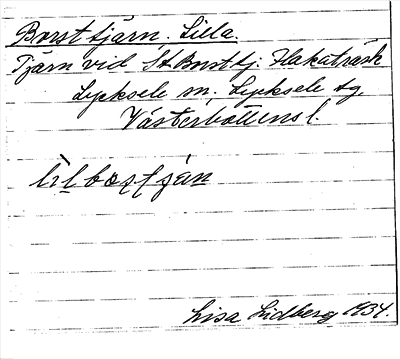 Borsttjärn, Lilla.
Tjärn vid St. Borsttj. Flakaträsk
Lycksele sn, Lycksele tg
Västerbottens l.
lilbosttjän
Lisa Lidberg 1934.